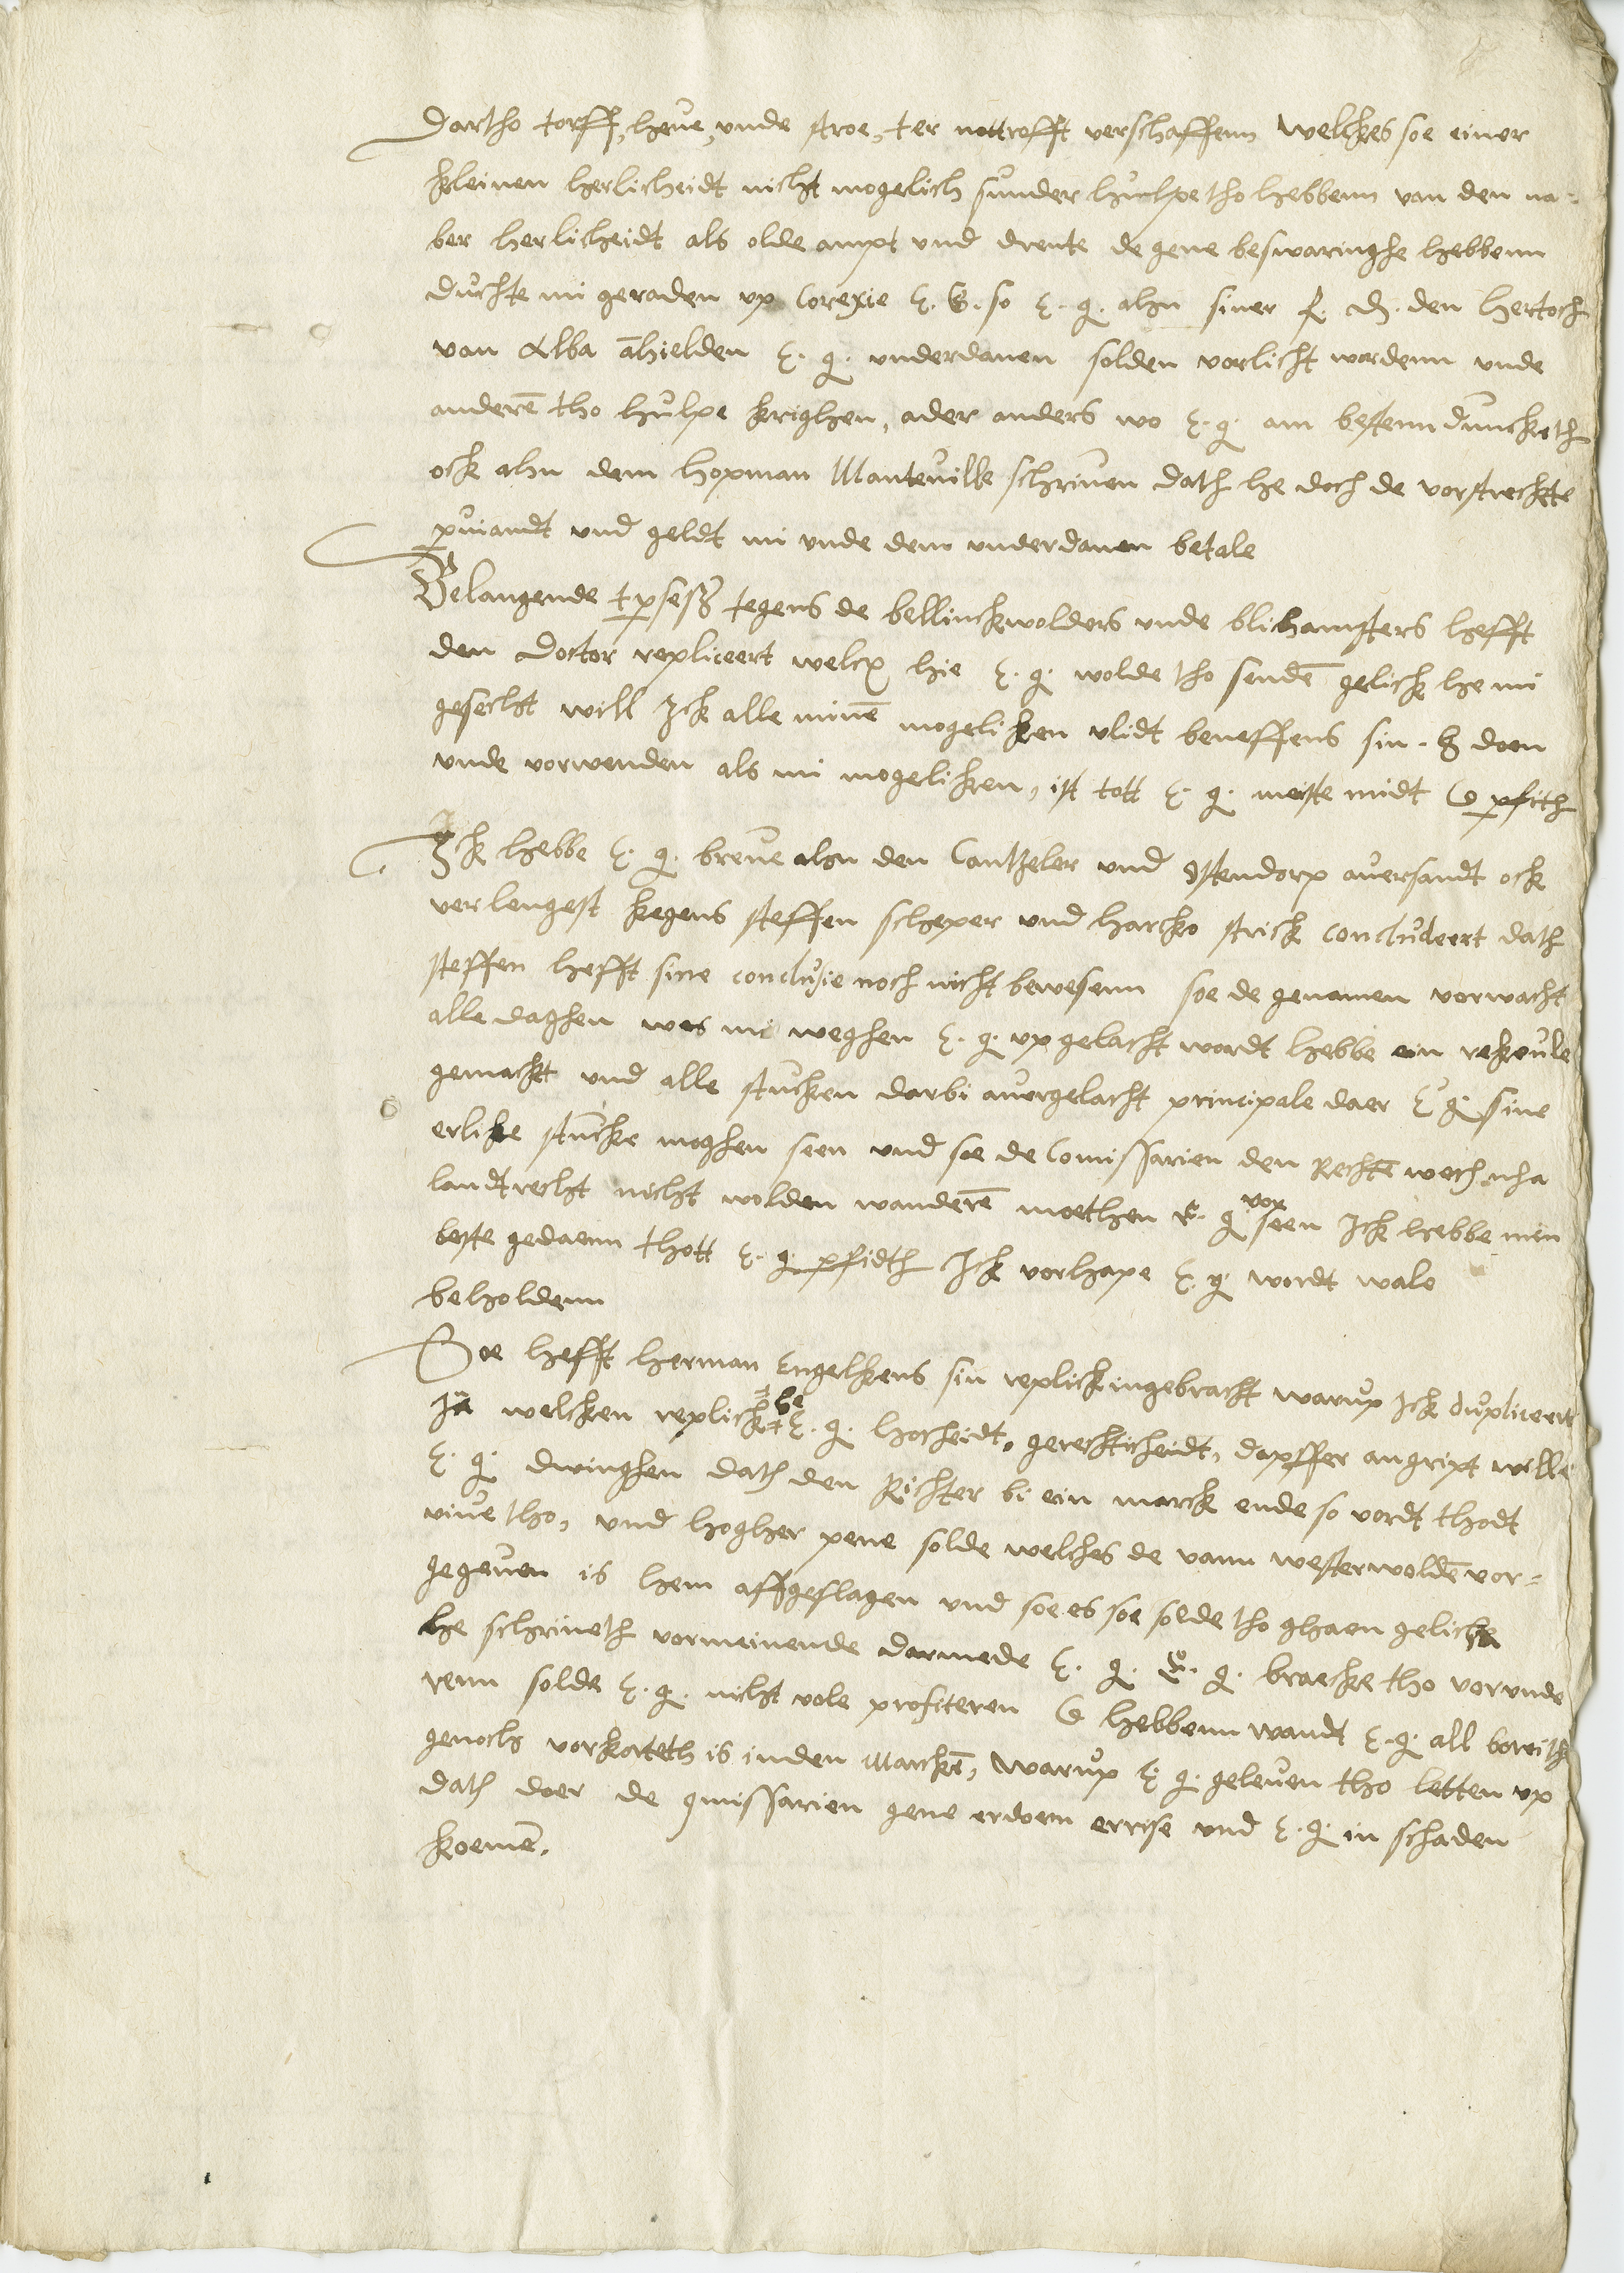 Dartho torff, heue, unde stroe, ter nottrofft verschaffenn welckes soe einer
kleinen herlicheidt nicht mogelich sunder hulpe tho hebbenn van den na-
ber herlicheidt als olde ampt und drente de gene beswaringhe hebbenn
duchte mi geraden up Corexie E. G. so E. g. ahn siner f. d. den hertoch
van Alba ahielden E. g. underdanen solden vorlicht werdenn unde
anderen tho hulpe krighen, ader anders wo E. g. am bestenn duncketh
ock ahn dem hopman Manteuill schriuen dath he doch de vorstreckte
puiandt und geldt mi unde dem underdanen betale
Belangende tpseß tegens de bellinckwolders unde blihamsters hefft
den Doctor repliceert welck hie E. g. wolde tho senden gelick he mi
gesecht will Ick alle minen mogeliken vlidt beneffens sin. g doen
unde vorwenden als mi mogeliken, ist tott E. g. meiste nudt & pfith
Ick hebbe E. g. breue ahn den Cantzeler und Ostendorp auersandt ock
verlengest kegens steffen scheper und harcko strick concludeert dath
steffen hefft sine conclusie noch nicht bewesenn soe de genamen vorwacht
alle daghen wes mi weghen E. g. up gelacht wordt hebbe ein rekoule
gemackt und alle stucken darbi auergelacht principale daer E g. sine
erlike stucke moghen seen und soe de Comissarien den Rechten wech nha
landtrecht nicht wolden wanderen moethen E. g. vor seen Ick hebbe min
beste gedaenn thott E. g. pfidth Ick vorhape E. g. wordt wale
beholdenn
Soe hefft herman Engelkens sin replick ingebracht warup Ick dupliceert
In welcken replick he E. g. hocheidt, gerechticheidt, dapffer angript wille
E. g. dwinghen dath den Richter bi ein marck ende so vordt thodt
viue tho, und hogher pene solde welches de vann westerwolden vor-
gegeuen is hem affgeslagen und soe es soe solde tho ghaen gelick
he schriueth vormeinende darmede E. g. E. g. braecke tho vorunde
renn solde E. g. nicht vole profiteren & hebbenn wandt E. g. all bereith
genoch vorkorteth is inden Marcken, Warup E. g. geleuen tho letten up
dath doer de qmissarien gene erdoem errise und E. g. in schaden
koemen.